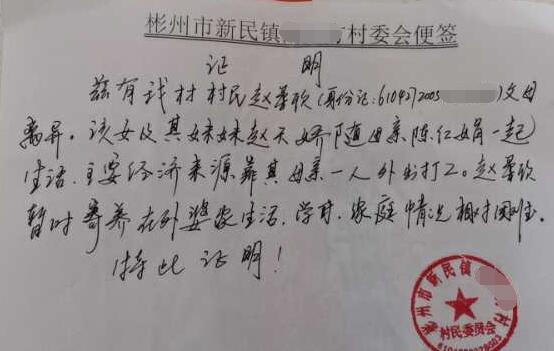 彬州市新民镇 村委会便签
证 明
兹有我村村民赵 欣(身份证:6104272005 )父母
离异。该女及其妹妹赵天娇随母亲陈仁娟一起
生活,主要经济来源靠其母亲一人外出打工。赵 欣
暂时寄养在外婆家生活、学习,家庭情况相对困难。
特此证明!
彬州市新民镇 村
村民委员会